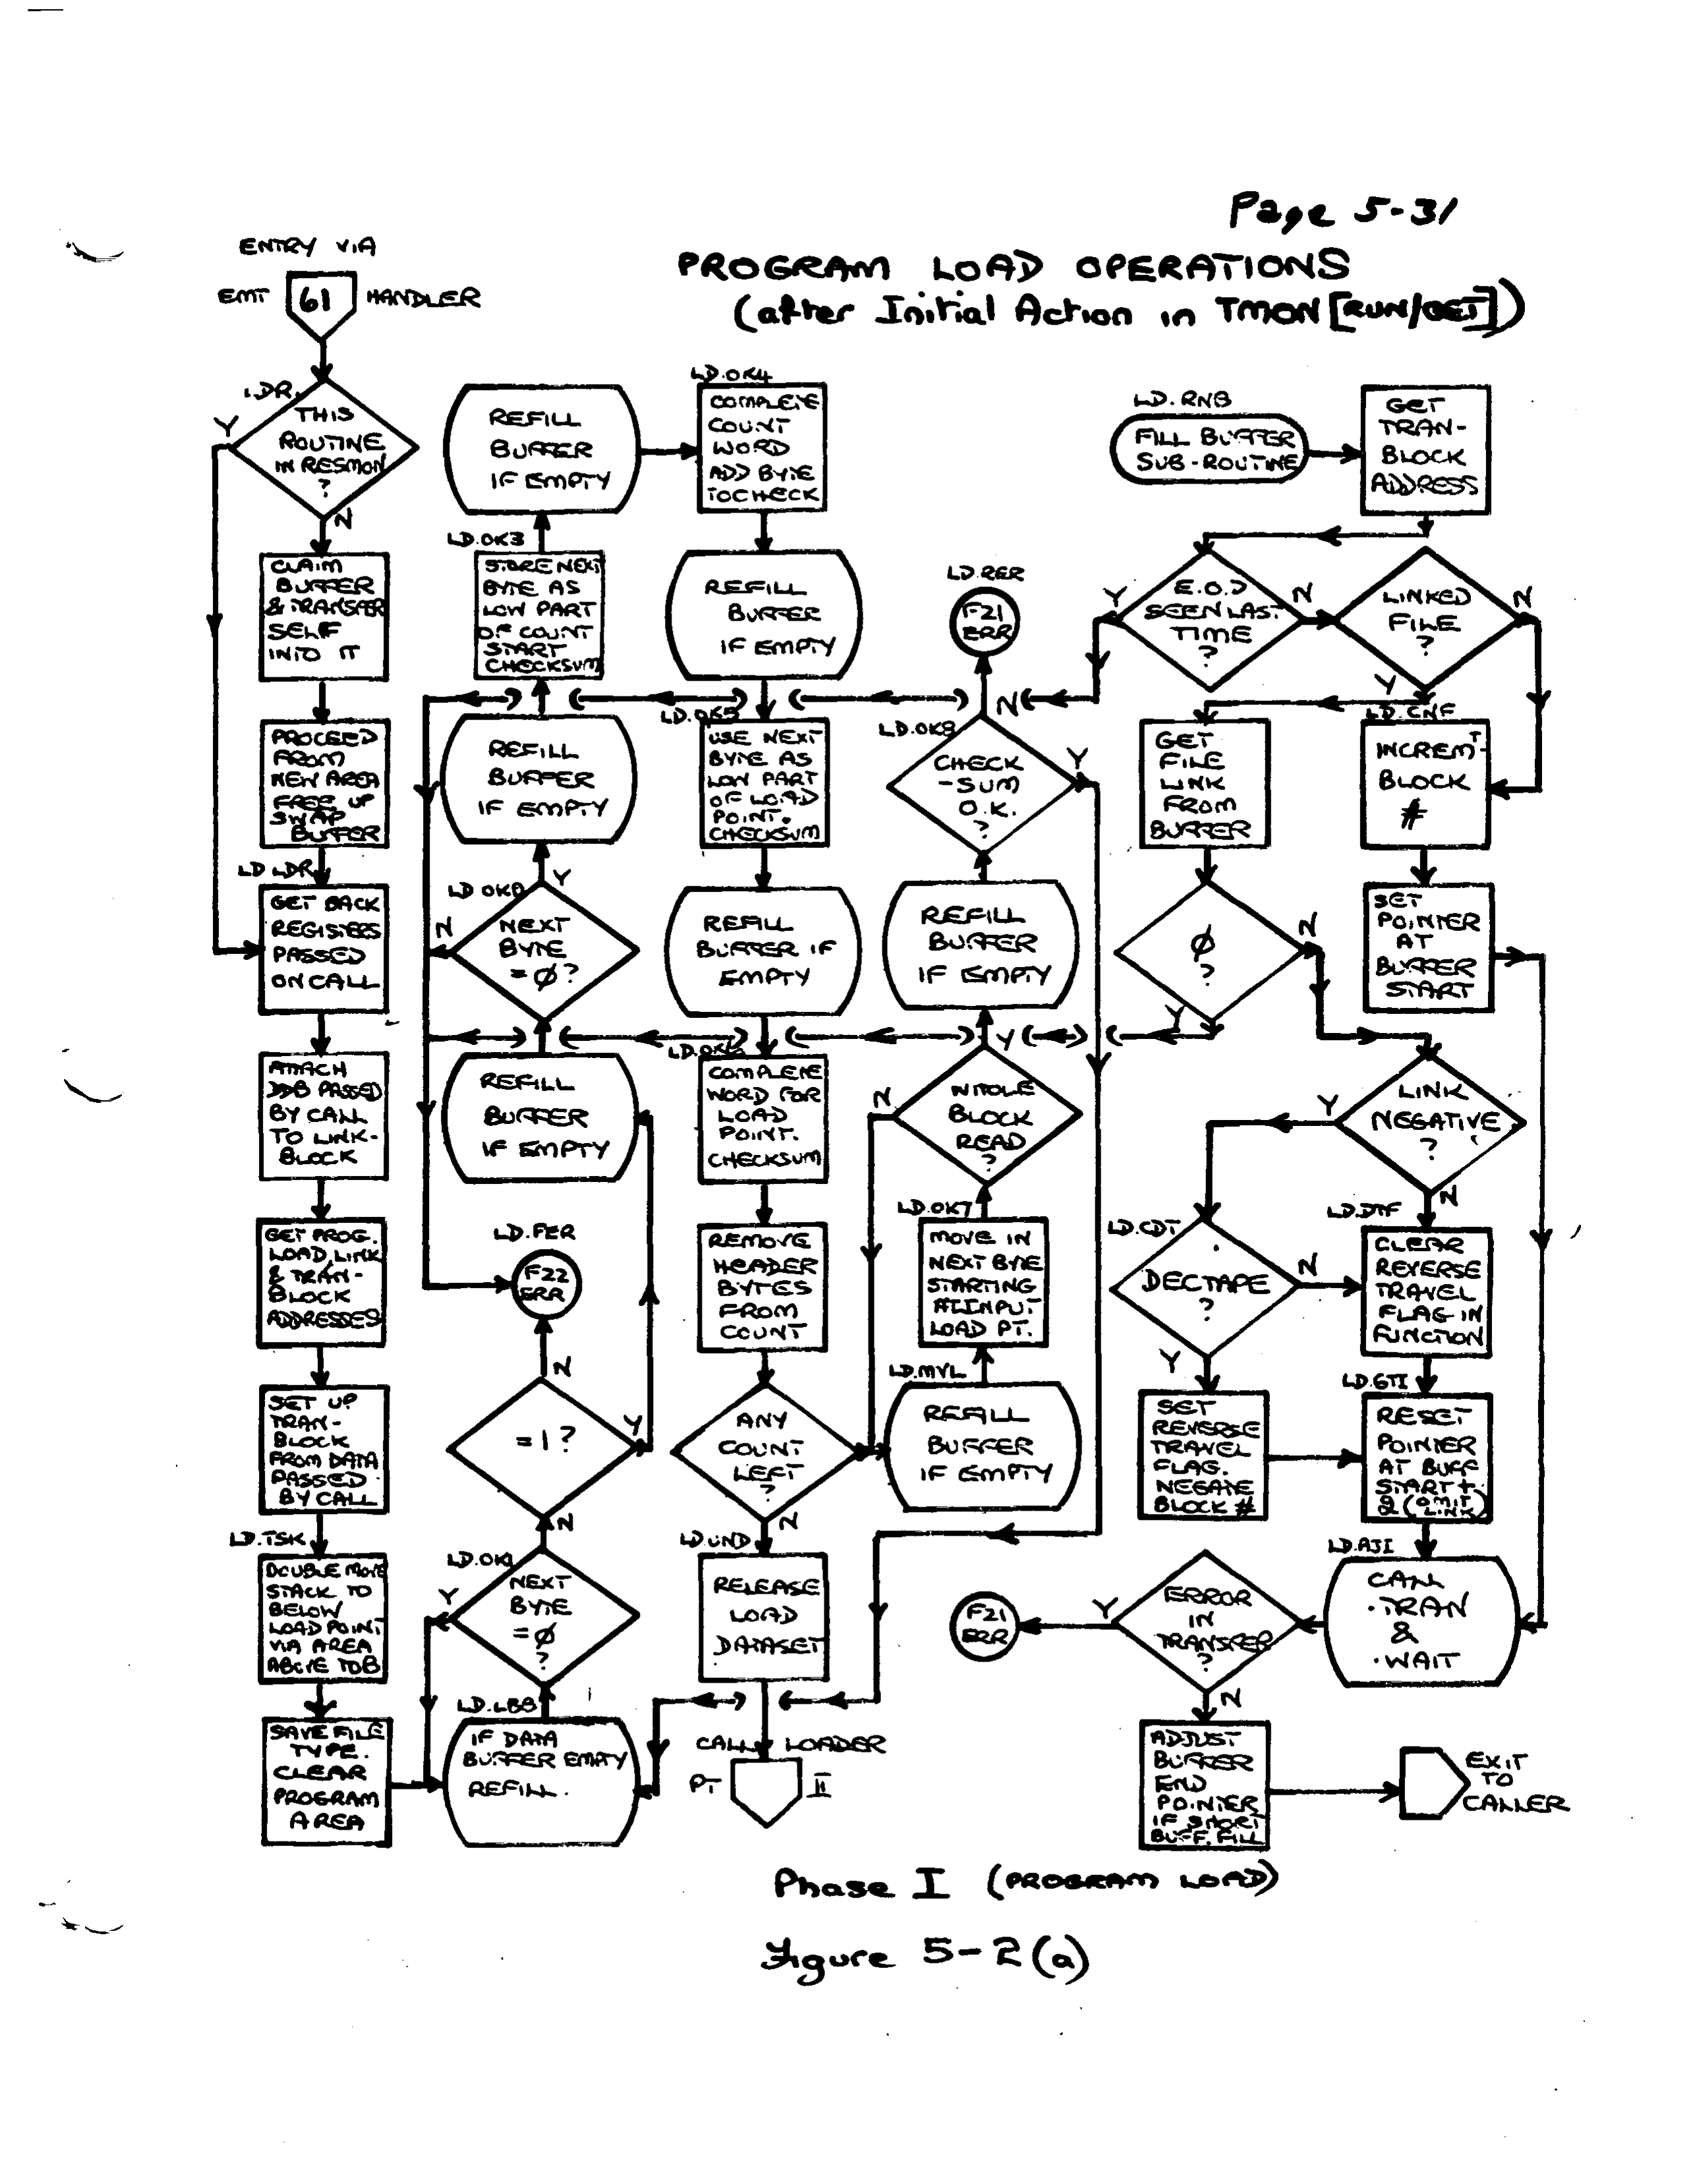 Page 5-31
PROGRAM LOAD OPERATIONS
(after Initial Action in TMON [RUN/GET])
ENTRY VIA
EMT 61 HANDLER
.LDR.
THIS
ROUTINE
IN RESMON
?
Y
N
CLAIM
BUFFER
& TRANSFER
SELF
INTO IT
PROCEED
FROM
NEW AREA
FREE UP
SWAP
BUFFER
LD LDR
GET BACK
REGISTERS
PASSED
ON CALL
ATTACH
DDB PASSED
BY CALL
TO LINK-
BLOCK
GET PROG.
LOAD, LINK
& TRAN-
BLOCK
ADDRESSES
SET UP
TRAN-
BLOCK
FROM DATA
PASSED
BY CALL
LD.TSK
DOUBLE MOVE
STACK TO
BELOW
LOAD POINT
VIA AREA
ABOVE TDB
SAVE FILE
TYPE.
CLEAR
PROGRAM
AREA
REFILL
BUFFER
IF EMPTY
LD.OK3
STORE NEXT
BYTE AS
LOW PART
OF COUNT
START
CHECKSUM
REFILL
BUFFER
IF EMPTY
LD OK2
Y
N
NEXT
BYTE
=Ø?
REFILL
BUFFER
IF EMPTY
LD.FER
F22
ERR
N
=1?
Y
N
LD.OK1
Y
NEXT
BYTE
=Ø
?
LD.LBB
IF DATA
BUFFER EMPTY
REFILL.
LD.OK4
COMPLETE
COUNT
WORD
ADD BYTE
TO CHECK
REFILL
BUFFER
IF EMPTY
LD.OK5
USE NEXT
BYTE AS
LOW PART
OF LOAD
POINT.
CHECKSUM
REFILL
BUFFER IF
EMPTY
LD.OK6
COMPLETE
WORD FOR
LOAD
POINT.
CHECKSUM
REMOVE
HEADER
BYTES
FROM
COUNT
ANY
COUNT
LEFT
?
N
LD.UND
RELEASE
LOAD
DATASET
CALL LOADER
PT II
LD.RER
F21
ERR
N
LD.OK8
CHECK
-SUM
O.K.
?
Y
REFILL
BUFFER
IF EMPTY
Y
N
WHOLE
BLOCK
READ
?
LD.OK7
MOVE IN
NEXT BYTE
STARTING
AT INPUT
LOAD PT.
LD.MVL
REFILL
BUFFER
IF EMPTY
LD.RNB
FILL BUFFER
SUB-ROUTINE
GET
TRAN-
BLOCK
ADDRESS
Y
E.O.D
SEEN LAST
TIME
?
N
LINKED
FILE
?
N
Y
GET
FILE
LINK
FROM
BUFFER
LD.CNF
INCREMT
BLOCK
#
Ø
?
N
Y
SET
POINTER
AT
BUFFER
START
LINK
NEGATIVE
?
Y
N
LD.CDT
DECTAPE
?
N
Y
LD.DTF
CLEAR
REVERSE
TRAVEL
FLAG IN
FUNCTION
SET
REVERSE
TRAVEL
FLAG.
NEGATE
BLOCK #
LD.GTI
RESET
POINTER
AT BUFF
START +
2 (OMIT LINK)
LD.AJI
CALL
.TRAN
&
.WAIT
ERROR
IN
TRANSFER
?
Y
N
F21
ERR
ADJUST
BUFFER
END
POINTER
IF SHORT
BUFF. FILL
EXIT
TO
CALLER
Phase I (PROGRAM LOAD)
Figure 5-2(a)